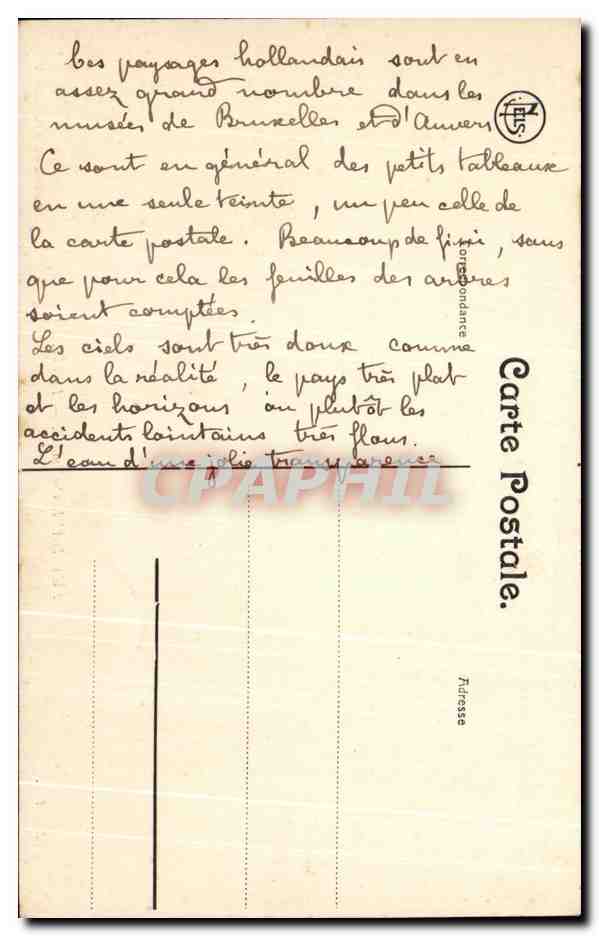 Ces paysages hollandais sont en
assez grand nombre dans les
musées de Bruxelles et d'Anvers
Ce sont en général des petits tableaux
en une seule teinte, un peu celle de
la carte postale. Beaucoup de fini, sans
que pour cela les feuilles des arbres
soient comptées.
Les ciels sont très doux comme
dans la réalité, le pays très plat
et les horizons ou plutôt les
accidents lointains très flous.
L'eau d'une jolie transparence
NELS
Correspondance
Carte Postale.
Adresse
CPAPHIL